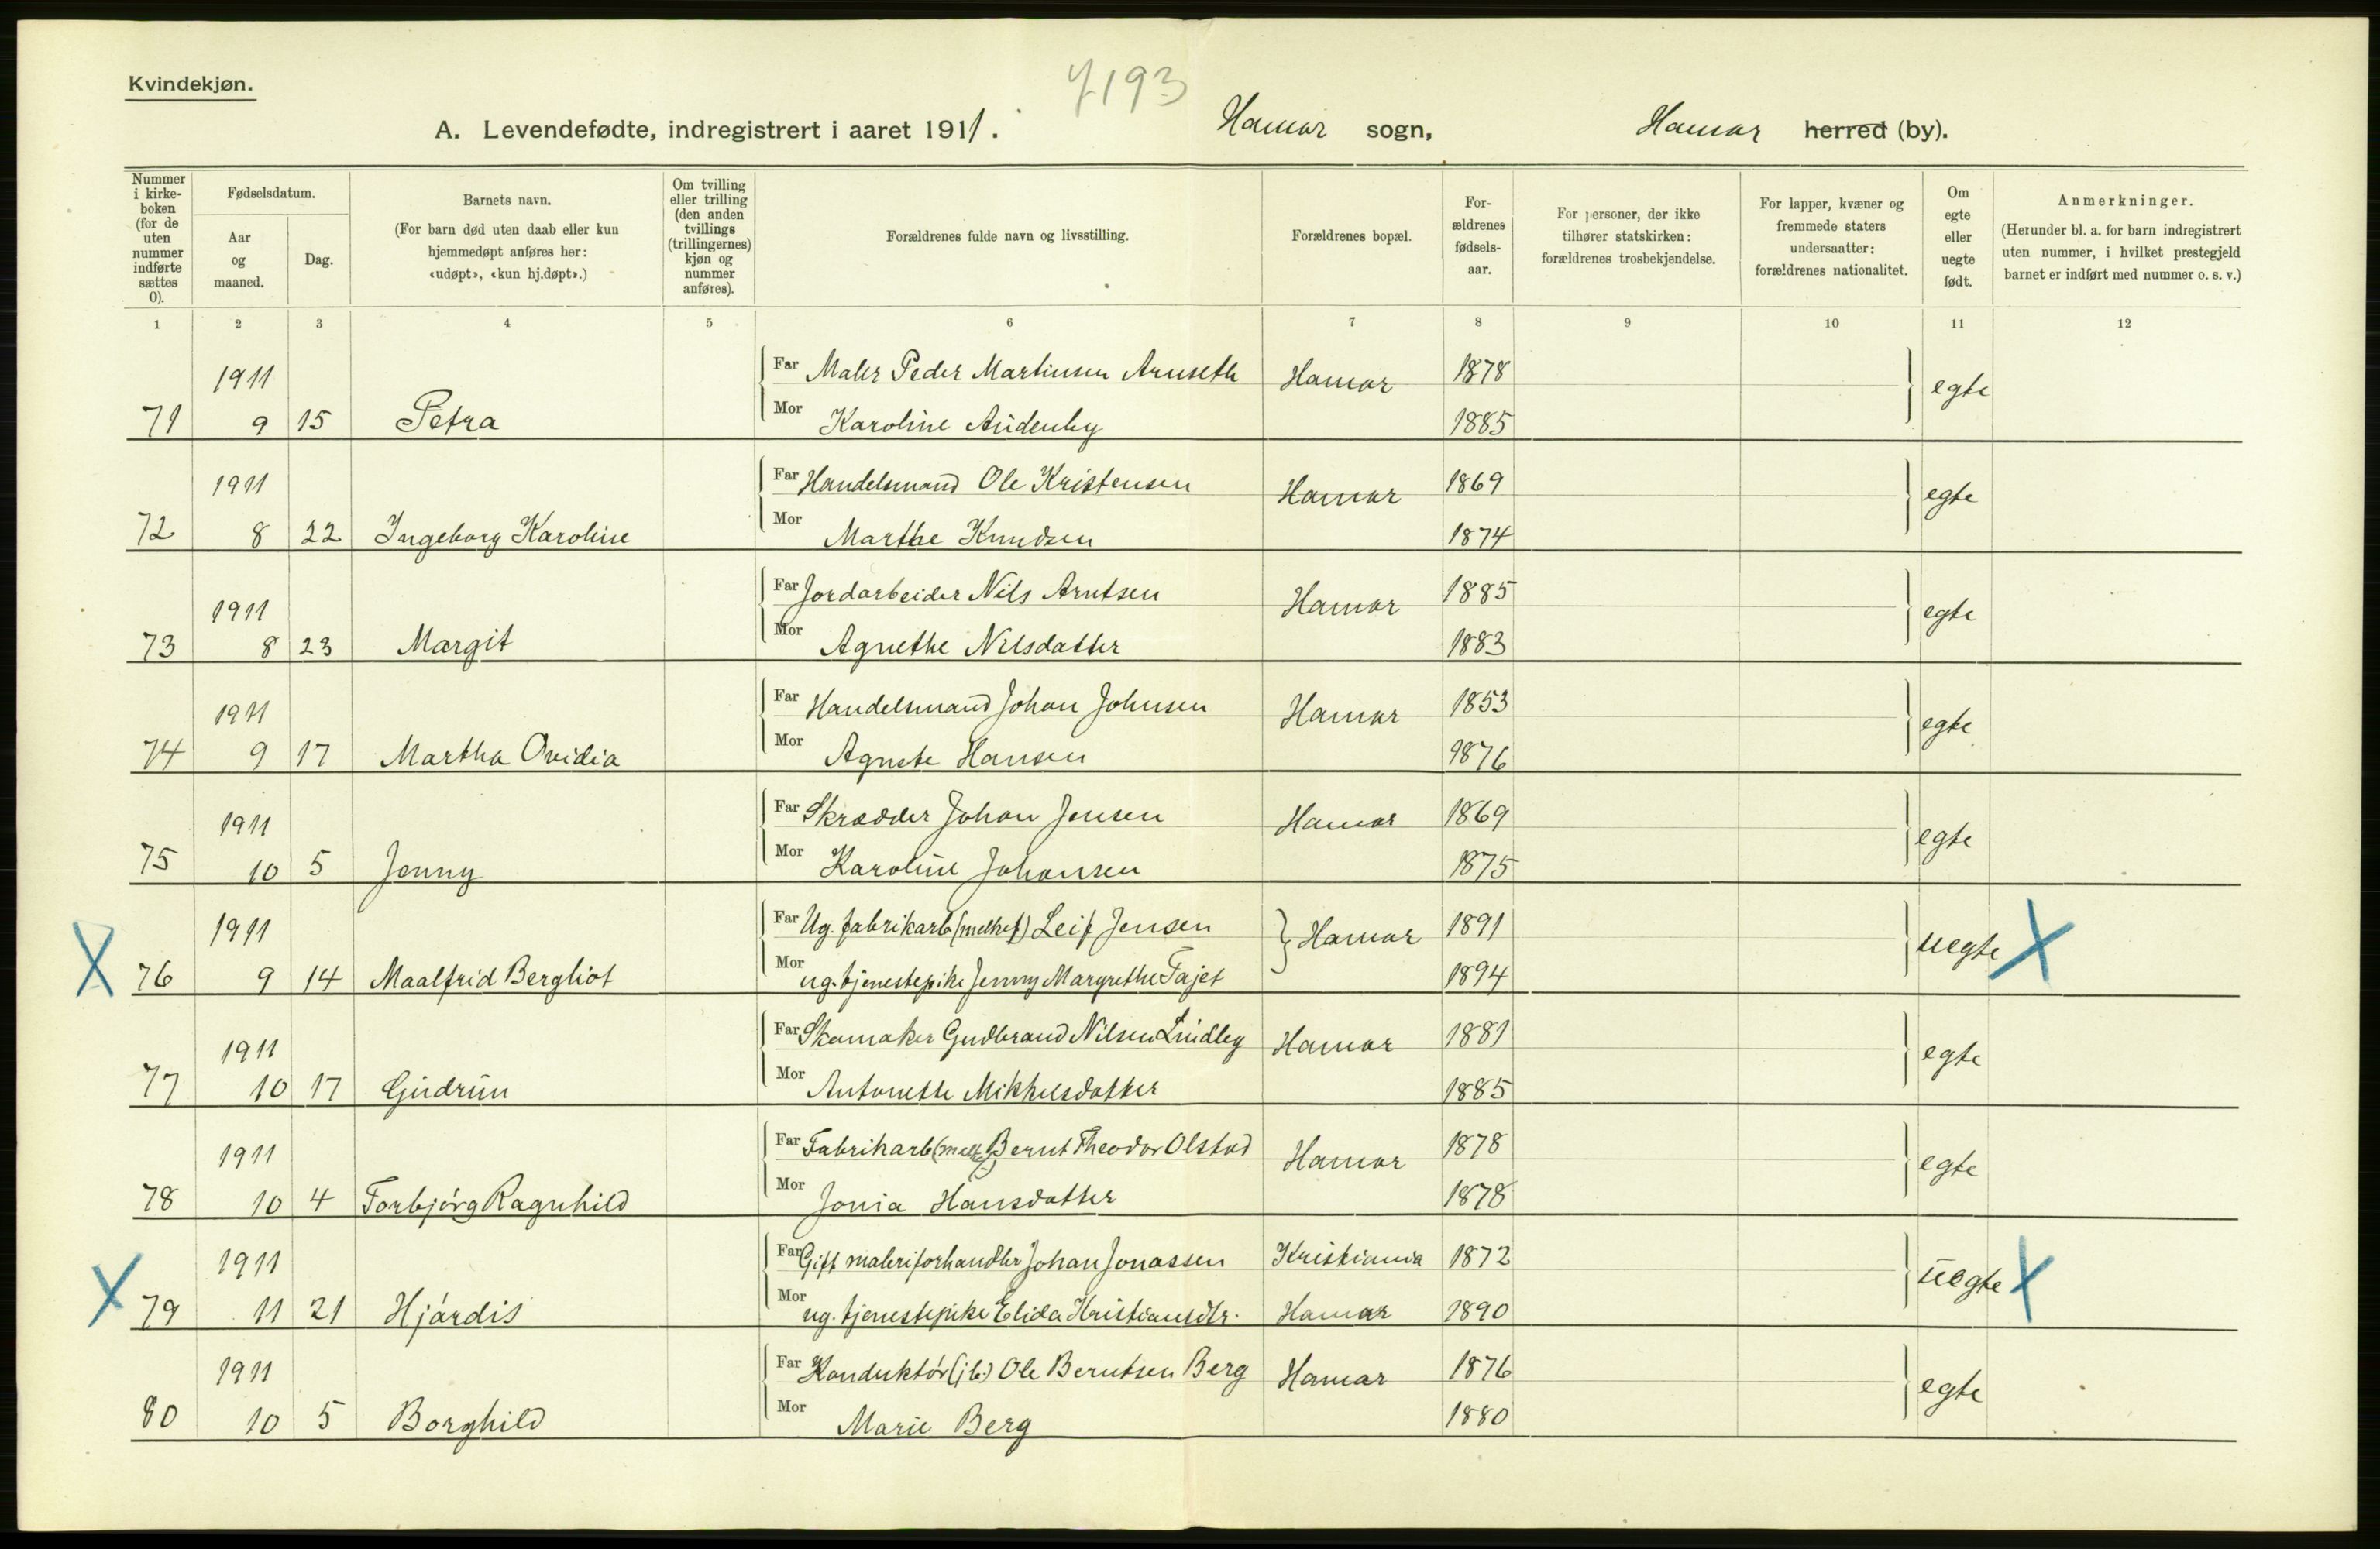 Kvindekjøn.
7193
A. Levendefødte, indregistrert i aaret 1911. Hamar sogn, Hamar herred (by).
Nummer i kirke-boken (for de uten nummer indførte sættes 0).
Fødselsdatum.
Aar og maaned.
Dag.
Barnets navn.
(For barn død uten daab eller kun hjemmedøpt anføres her: «udøpt», «kun hj.døpt».)
Om tvilling eller trilling (den anden tvillings (trillingernes) kjøn og nummer anføres).
Forældrenes fulde navn og livsstilling.
Forældrenes bopæl.
For-ældrenes fødsels-aar.
For personer, der ikke tilhører statskirken: forældrenes trosbekjendelse.
For lapper, kvæner og fremmede staters undersaatter: forældrenes nationalitet.
Om egte eller uegte født.
Anmerkninger.
(Herunder bl. a. for barn indregistrert uten nummer, i hvilket prestegjeld barnet er indført med nummer o. s. v.)
1 2 3 4 5 6 7 8 9 10 11 12
1911 Far Maler Peder Martinsen Arnseth Hamar 1878 egte
71 9 15 Petra Mor Karoline Audenby 1885
1911 Far Handelsmand Ole Kristensen Hamar 1869 egte
72 8 22 Ingeborg Karoline Mor Marthe Knudsen 1874
1911 Far Jordarbeider Nils Arntsen Hamar 1885 egte
73 8 23 Margit Mor Agnethe Nilsdatter 1883
1911 Far Handelsmand Johan Johnsen Hamar 1853 egte
74 9 17 Martha Ovidia Mor Agnete Hansen 1876
1911 Far Skrædder Johan Jensen Hamar 1869 egte
75 10 5 Jenny Mor Karoline Johansen 1875
1911 Far Ug. fabrikarb (melkef) Leif Jensen Hamar 1891 uegte X
X 76 9 14 Maalfrid Bergliot Mor ug. tjenestepike Jenny Margrethe Fajet 1894
1911 Far Skomaker Gudbrand Nilsen Lindby Hamar 1881 egte
77 10 17 Gudrun Mor Antonette Mikkelsdatter 1885
1911 Far Fabrikarb (melkef) Bernt Theodor Olstad Hamar 1878 egte
78 10 4 Torbjørg Ragnhild Mor Jonia Hansdatter 1878
1911 Far Gift maleriforhandler Johan Jonassen Kristiania 1872 uegte X
X 79 11 21 Hjørdis Mor ug. tjenestepike Elida Kristiansdtr. Hamar 1890
1911 Far Konduktør (jb.) Ole Berntsen Berg Hamar 1876 egte
80 10 5 Borghild Mor Marie Berg 1880